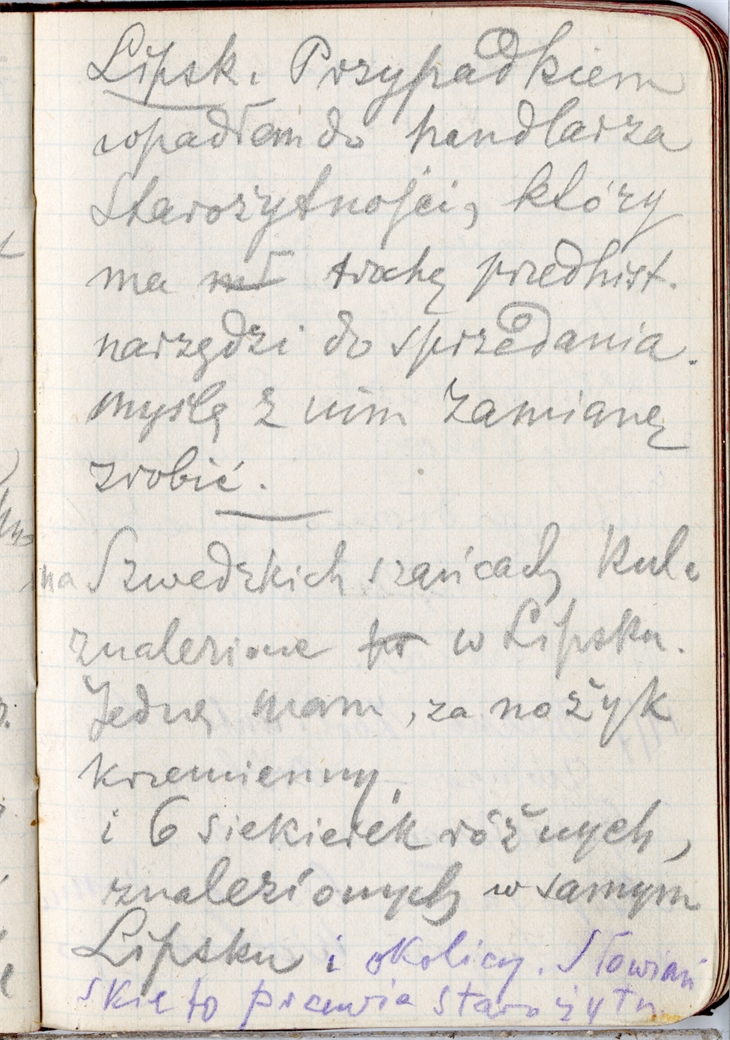 Lipsk. Przypadkiem
wpadłem do handlarza
Starożytności, który
ma trochę przedhist.
narzędzi do sprzedania.
myślę z nim zamianę
zrobić.
na Szwedzkich szańcach kule
znalezione to w Lipsku.
Jedną mam, za nożyk
krzemienny,
i 6 siekierek różnych,
znalezionych w samym
Lipsku i okolicy. Słowiań
skie to prawie starożytn